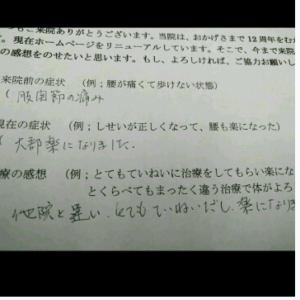 もご来院ありがとうございます。当院は、おかげさまで12周年をむか
す。現在ホームページをリニューアルしています。そこで、今まで来院
の感想をのせたいと思います。もし、よろしければ、ご協力お願いし
来院前の症状 (例；腰が痛くて歩けない状態)
( 股関節の痛み
現在の症状 (例；しせいが正しくなって、腰も楽になった)
( 大部楽になりました.
療の感想 (例；とてもていねいに治療をしてもらい楽にな
とくらべてもまったく違う治療で体がよろ
他院と違い、とてもていねいだし、楽になりま